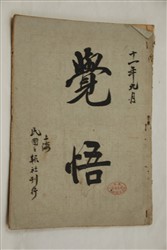 十一年九月
覺悟
上海
民國日報社刊行